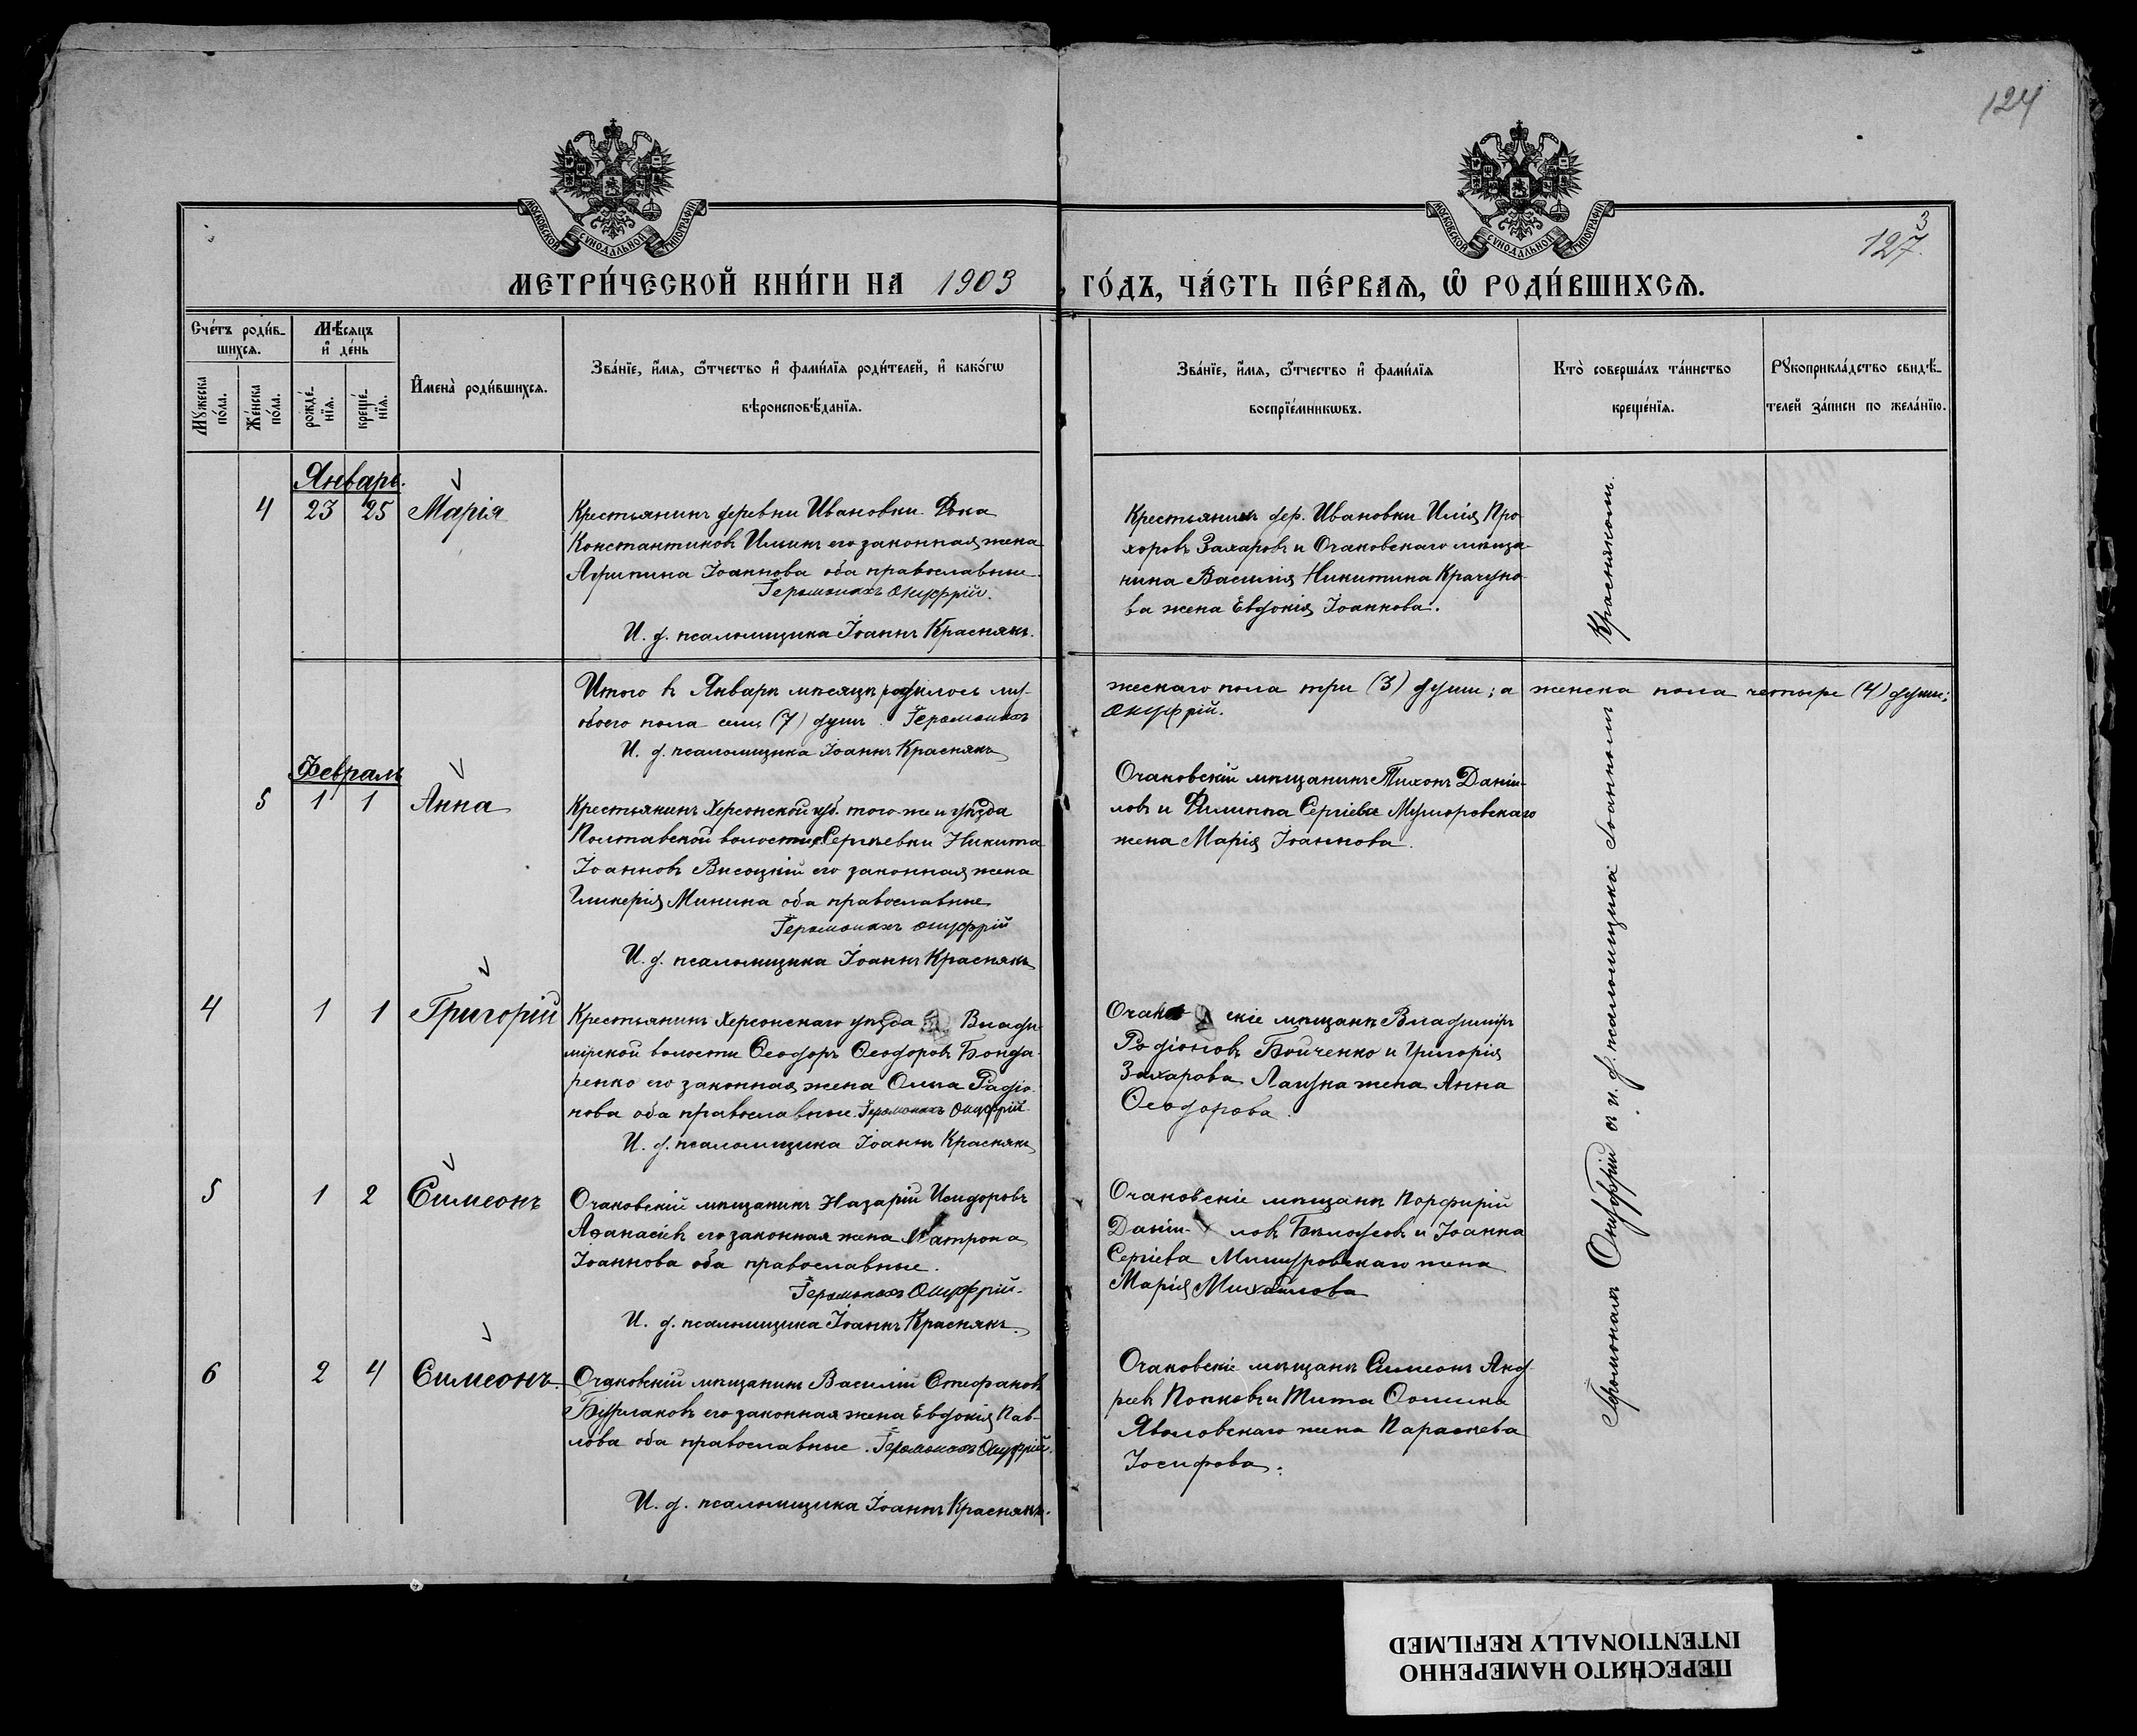 124
3
127.
МОСКОВСКОЙ СѴНОДАЛЬНОЙ ТИПОГРАФІИ
МОСКОВСКОЙ СѴНОДАЛЬНОЙ ТИПОГРАФІИ
МЕТРИ́ЧЕСКОЙ КНИ́ГИ НА 1903 ГО́ДЪ, ЧА́СТЬ ПЕ́РВАЯ, Ѡ РОДИ́ВШИХСЯ.
Сче́тъ роди́в-
шихся.
Мѣ́сяцъ
и҆ де́нь
Мꙋ́жеска
по́ла.
Же́нска
по́ла.
рожде́-
нїя.
креще́-
нїя.
И҆мена̀ роди́вшихся.
Зва́нїе, и҆́мя, ѻ҆́тчество и҆ фами́лїя роди́телей, и҆ како́гѡ
вѣроисповѣ́данїя.
Зва́нїе, и҆́мя, ѻ҆́тчество и҆ фами́лїя
воспрїе́мникѡвъ.
Кто̀ соверша́лъ та́инство
креще́нїя.
Рꙋкоприкла́дство свидѣ́-
телей за́писи по жела́нїю.
Январь.
4 23 25 Марія
Крестьянинъ деревни Ивановки Ѳока
Константиновъ Ильинъ его законная жена
Агрипина Іоаннова оба православные.
Іеромонахъ Онуфрій.
И. д. псаломщика Іоаннъ Краснякъ.
Крестьянинъ дер. Ивановки Илія Про-
хоровъ Захаровъ и Очаковскаго мѣща-
нина Василія Никитина Крачуно-
ва жена Евдокія Іоаннова.
Итого въ Январѣ мѣсяцѣ родилось му-
жескаго пола три (3) души; а женска пола четыре (4) души;
обоего пола семь (7) душъ. Іеромонахъ
Онуфрій.
И. д. псаломщика Іоаннъ Краснякъ
Февраль
5 1 1 Анна
Крестьянинъ Херсонской губ. того-же и уѣзда
Полтавской волости Сергѣевки Никита
Іоанновъ Высоцкій его законная жена
Гликерія Минина оба православные
Іеромонахъ Онуфрій
И. д. псаломщика Іоаннъ Краснякъ
Очаковскій мѣщанинъ Тихонъ Даніи-
ловъ и Филиппа Сергіева
жена Марія Іоаннова.
4 1 1 Григорій
Крестьянинъ Херсонскаго уѣзда Влади-
мірской волости Ѳеодоръ Ѳеодоровъ Бонда-
ренко его законная жена Ольга Радіо-
нова оба православные. Іеромонахъ Онуфрій.
И. д. псаломщика Іоаннъ Краснякъ
Очаковскіе мѣщане Владиміръ
Родіоновъ Бойченко и Григорія
Захарова жена Анна
Ѳеодорова.
5 1 2 Симеонъ
Очаковскій мѣщанинъ Назарій Исидоровъ
Аѳанасіевъ его законная жена Матрона
Іоаннова оба православные.
Іеромонахъ Онуфрій.
И. д. псаломщика Іоаннъ Краснякъ.
Очаковскіе мѣщане Порфирій
Даніи- ловъ Бѣлоусовъ и Іоанна
Сергіева жена
Марія Михайлова
6 2 4 Симеонъ.
Очаковскій мѣщанинъ Василій Стефановъ
Бурлаковъ его законная жена Евдокія Пав-
лова оба православные. Іеромонахъ Онуфрій.
И. д. псаломщика Іоаннъ Краснякъ.
Очаковскіе мѣщане Симеонъ Анд-
реевъ Попковъ и Тита Ѳомина
жена Параскева
Іосифова.
Іеромонахъ Онуфрій съ и. д. псаломщика Іоанномъ Краснякомъ.
ПЕРЕСНЯТО НАМЕРЕННО
INTENTIONALLY REFILMED